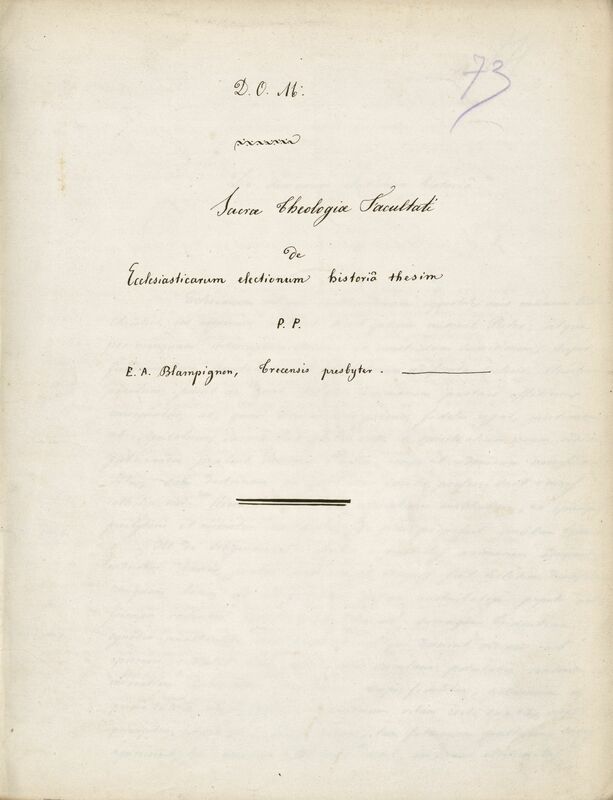 73
D. O. M.
Sacræ Theologiæ Facultati
de
Ecclesiasticarum electionum historiâ thesim
P. P.
E. A. Blampignon, Trecensis presbyter.